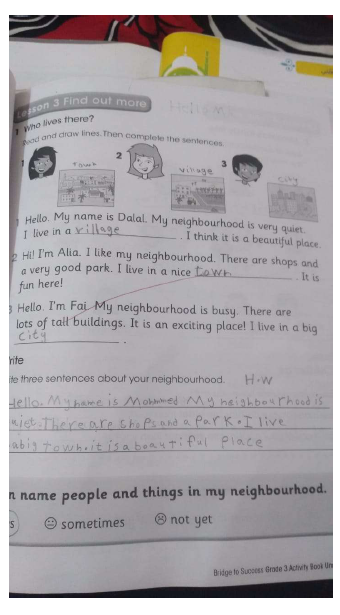 Lesson 3 Find out more
1 Who lives there?
Read and draw lines. Then complete the sentences.
1 2 3
Town village city
1 Hello. My name is Dalal. My neighbourhood is very quiet.
I live in a village . I think it is a beautiful place.
2 Hi! I'm Alia. I like my neighbourhood. There are shops and
a very good park. I live in a nice town . It is
fun here!
3 Hello. I'm Fai. My neighbourhood is busy. There are
lots of tall buildings. It is an exciting place! I live in a big
city .
rite
te three sentences about your neighbourhood. H.w
Hello. My name is Mohmmed My neighbourhood is
uiet. There are shops and a park. I live
a big town. it is a beautiful place
n name people and things in my neighbourhood.
s sometimes not yet
Bridge to Success Grade 3 Activity Book Un